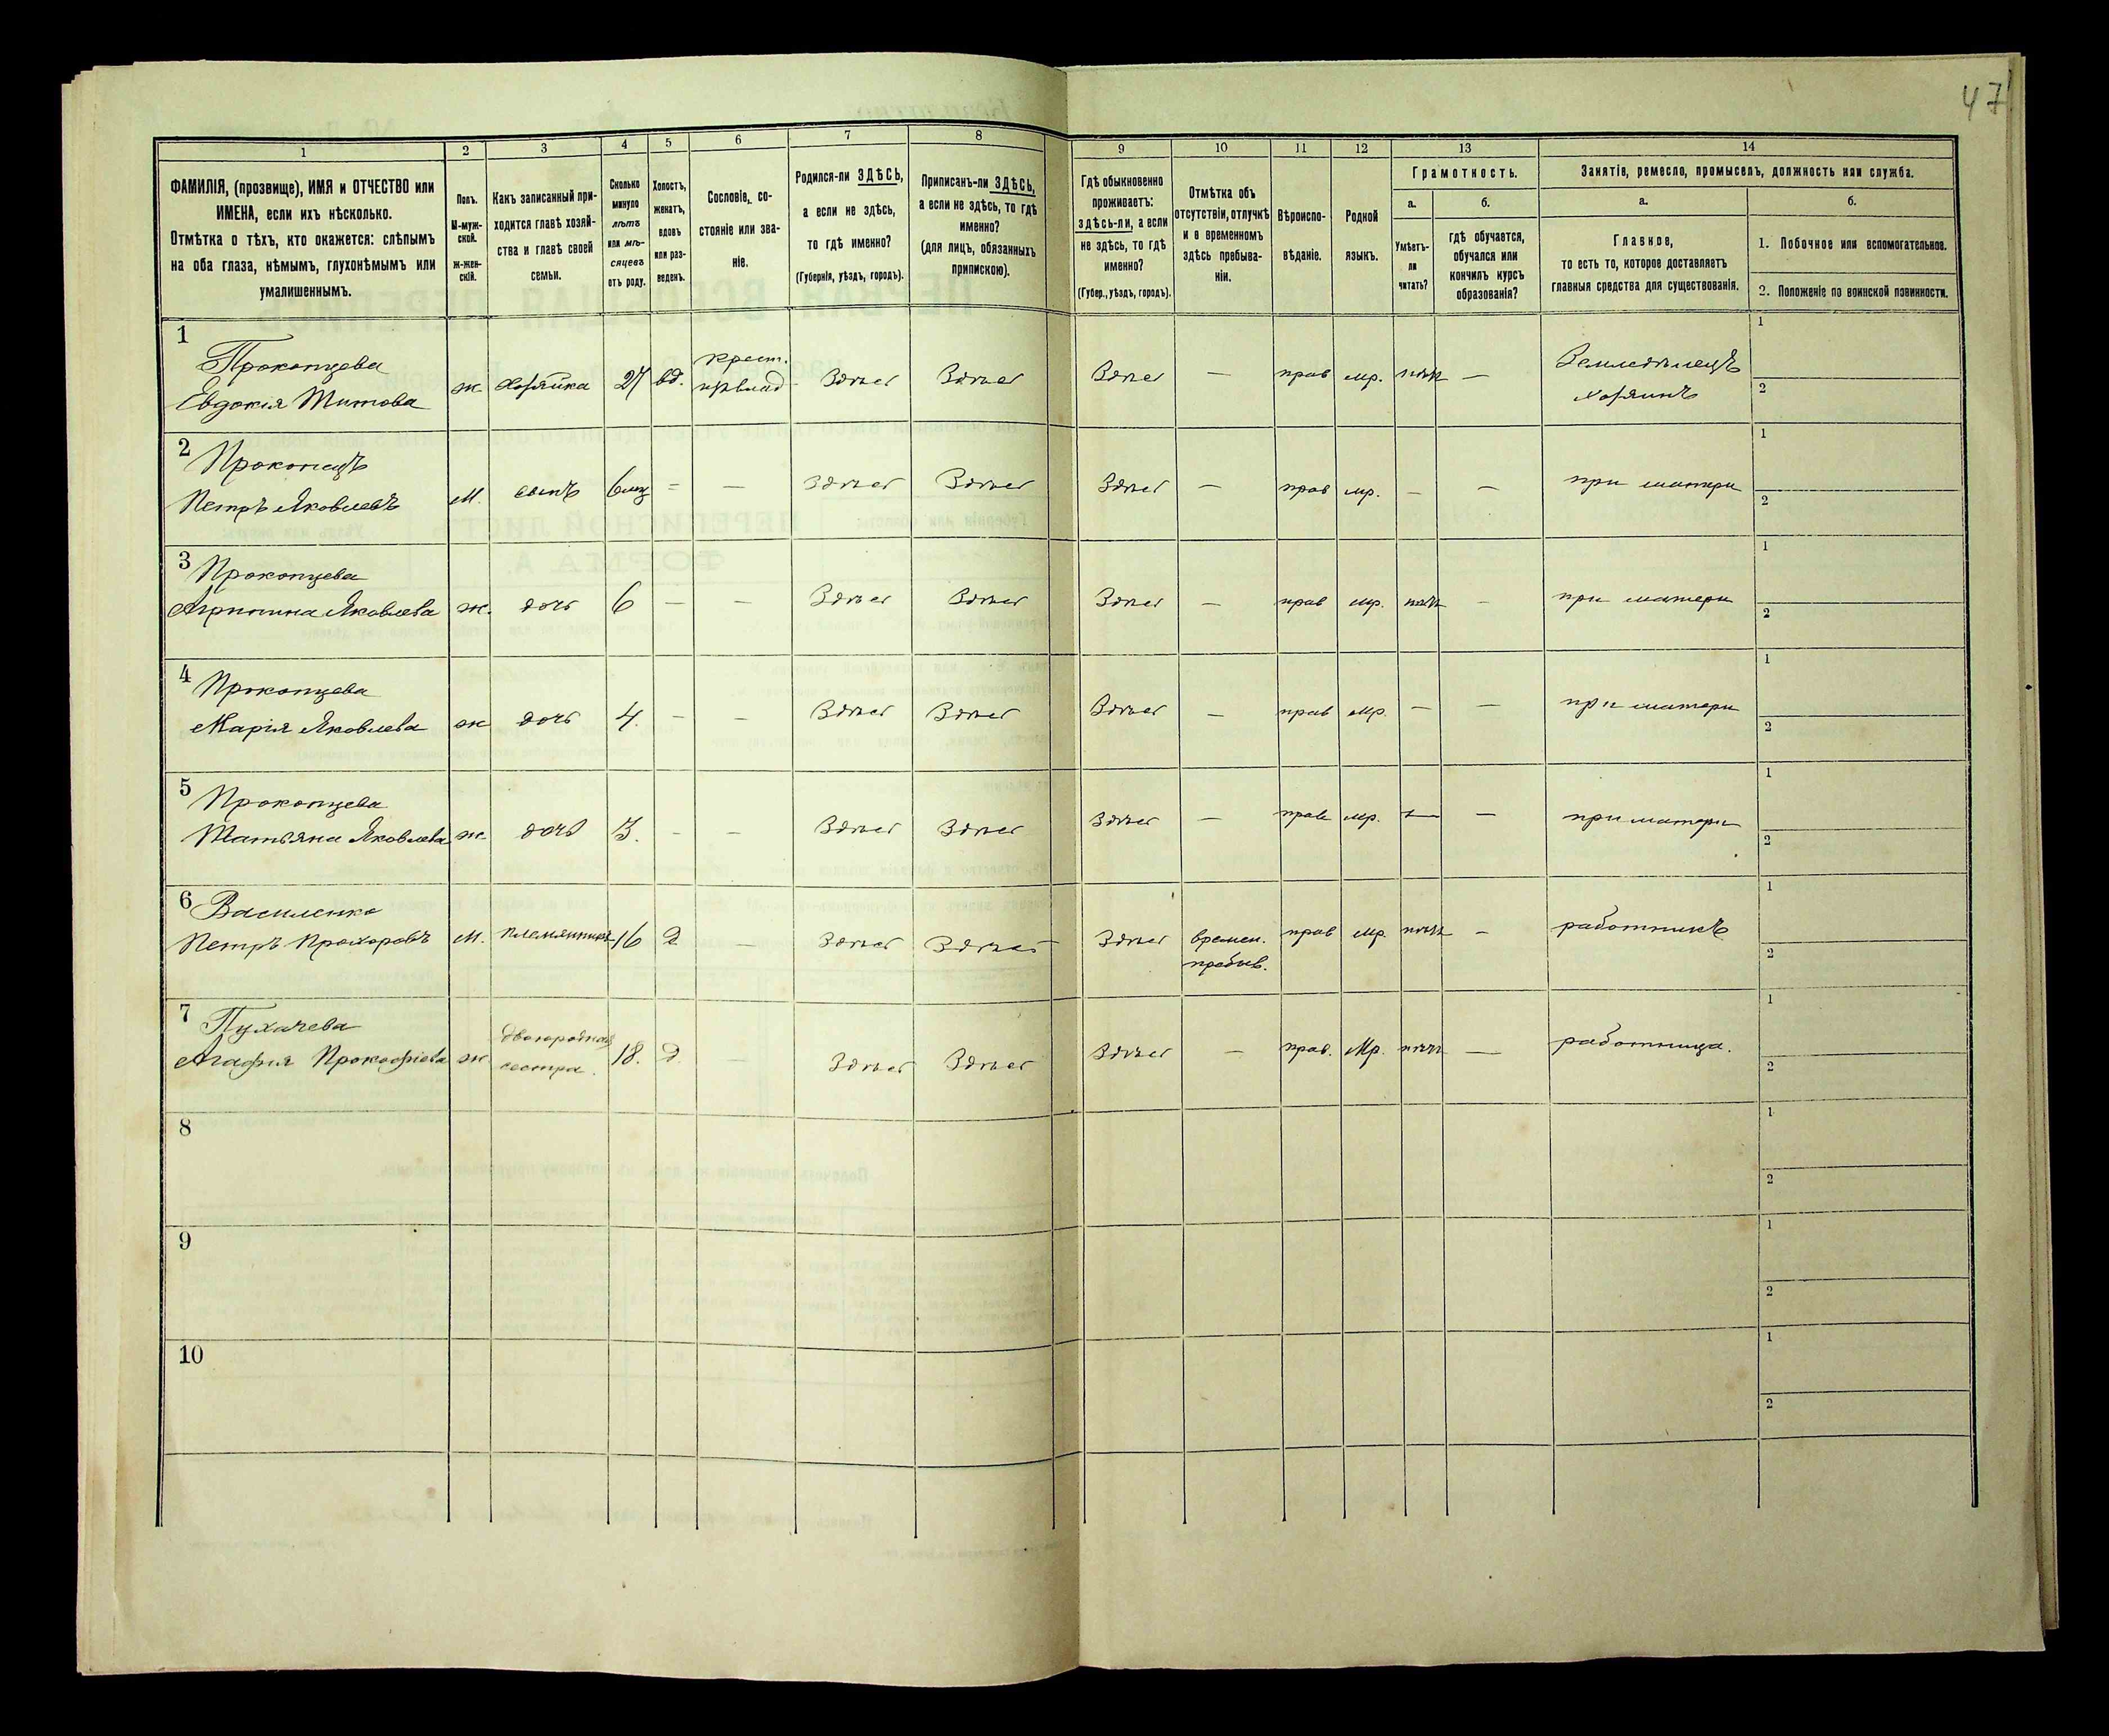 47
1
2
3
4
5
6
7
8
9
10
11
12
13
14
ФАМИЛІЯ, (прозвище), ИМЯ и ОТЧЕСТВО или
ИМЕНА, если ихъ нѣсколько.
Отмѣтка о тѣхъ, кто окажется: слѣпымъ
на оба глаза, нѣмымъ, глухонѣмымъ или
умалишеннымъ.
Полъ.
М-муж-
ской.
Ж-жен-
скій.
Какъ записанный при-
ходится главѣ хозяй-
ства и главѣ своей
семьи.
Сколько
минуло
лѣтъ
или мѣ-
сяцевъ
отъ роду.
Холостъ,
женатъ,
вдовъ
или раз-
веденъ.
Сословіе, со-
стояніе или зва-
ніе.
Родился-ли ЗДѢСЬ,
а если не здѣсь,
то гдѣ именно?
(Губернія, уѣздъ, городъ).
Приписанъ-ли ЗДѢСЬ,
а если не здѣсь, то гдѣ
именно?
(для лицъ, обязанныхъ
припискою).
Гдѣ обыкновенно
проживаетъ:
здѣсь-ли, а если
не здѣсь, то гдѣ
именно?
(Губер., уѣздъ, городъ).
Отмѣтка объ
отсутствіи, отлучкѣ
и о временномъ
здѣсь пребыва-
ніи.
Вѣроиспо-
вѣданіе.
Родной
языкъ.
Грамотность.
а.
Умѣетъ-
ли
читать?
б.
гдѣ обучается,
обучался или
кончилъ курсъ
образованія?
Занятіе, ремесло, промыселъ, должность или служба.
а.
Главное,
то есть то, которое доставляетъ
главныя средства для существованія.
б.
1. Побочное или вспомогательное.
2. Положеніе по воинской повинности.
1
Прокопцева
Евдокія Титова ж хозяйка 27 вд. крест. Здѣсь Здѣсь Здѣсь — прав мр. нѣтъ — Земледѣлецъ
хозяинъ
1
2
2
Прокопецъ
Петръ Яковлевъ М. сынъ 6 мц = — Здѣсь Здѣсь Здѣсь — прав мр. — — при матери
1
2
3
Прокопцева
Агрипина Яковлева ж. дочь 6 — — Здѣсь Здѣсь Здѣсь — прав мр. нѣтъ — при матери
1
2
4
Прокопцева
Марія Яковлева ж дочь 4. — — Здѣсь Здѣсь Здѣсь — прав мр. — — при матери
1
2
5
Прокопцева
Татьяна Яковлева ж. дочь 3. — — Здѣсь Здѣсь Здѣсь — прав мр. — — при матери
1
2
6
Василенко
Петръ Прохоровъ М. племянникъ 16 — Здѣсь Здѣсь Здѣсь времен.
пребыв. прав мр. нѣтъ — работникъ
1
2
7
Пухачева
Агафія Прокофіева ж. двоюродная
сестра. 18. — Здѣсь Здѣсь Здѣсь — прав. Мр. нѣтъ — работница.
1
2
8
1
2
9
1
2
10
1
2